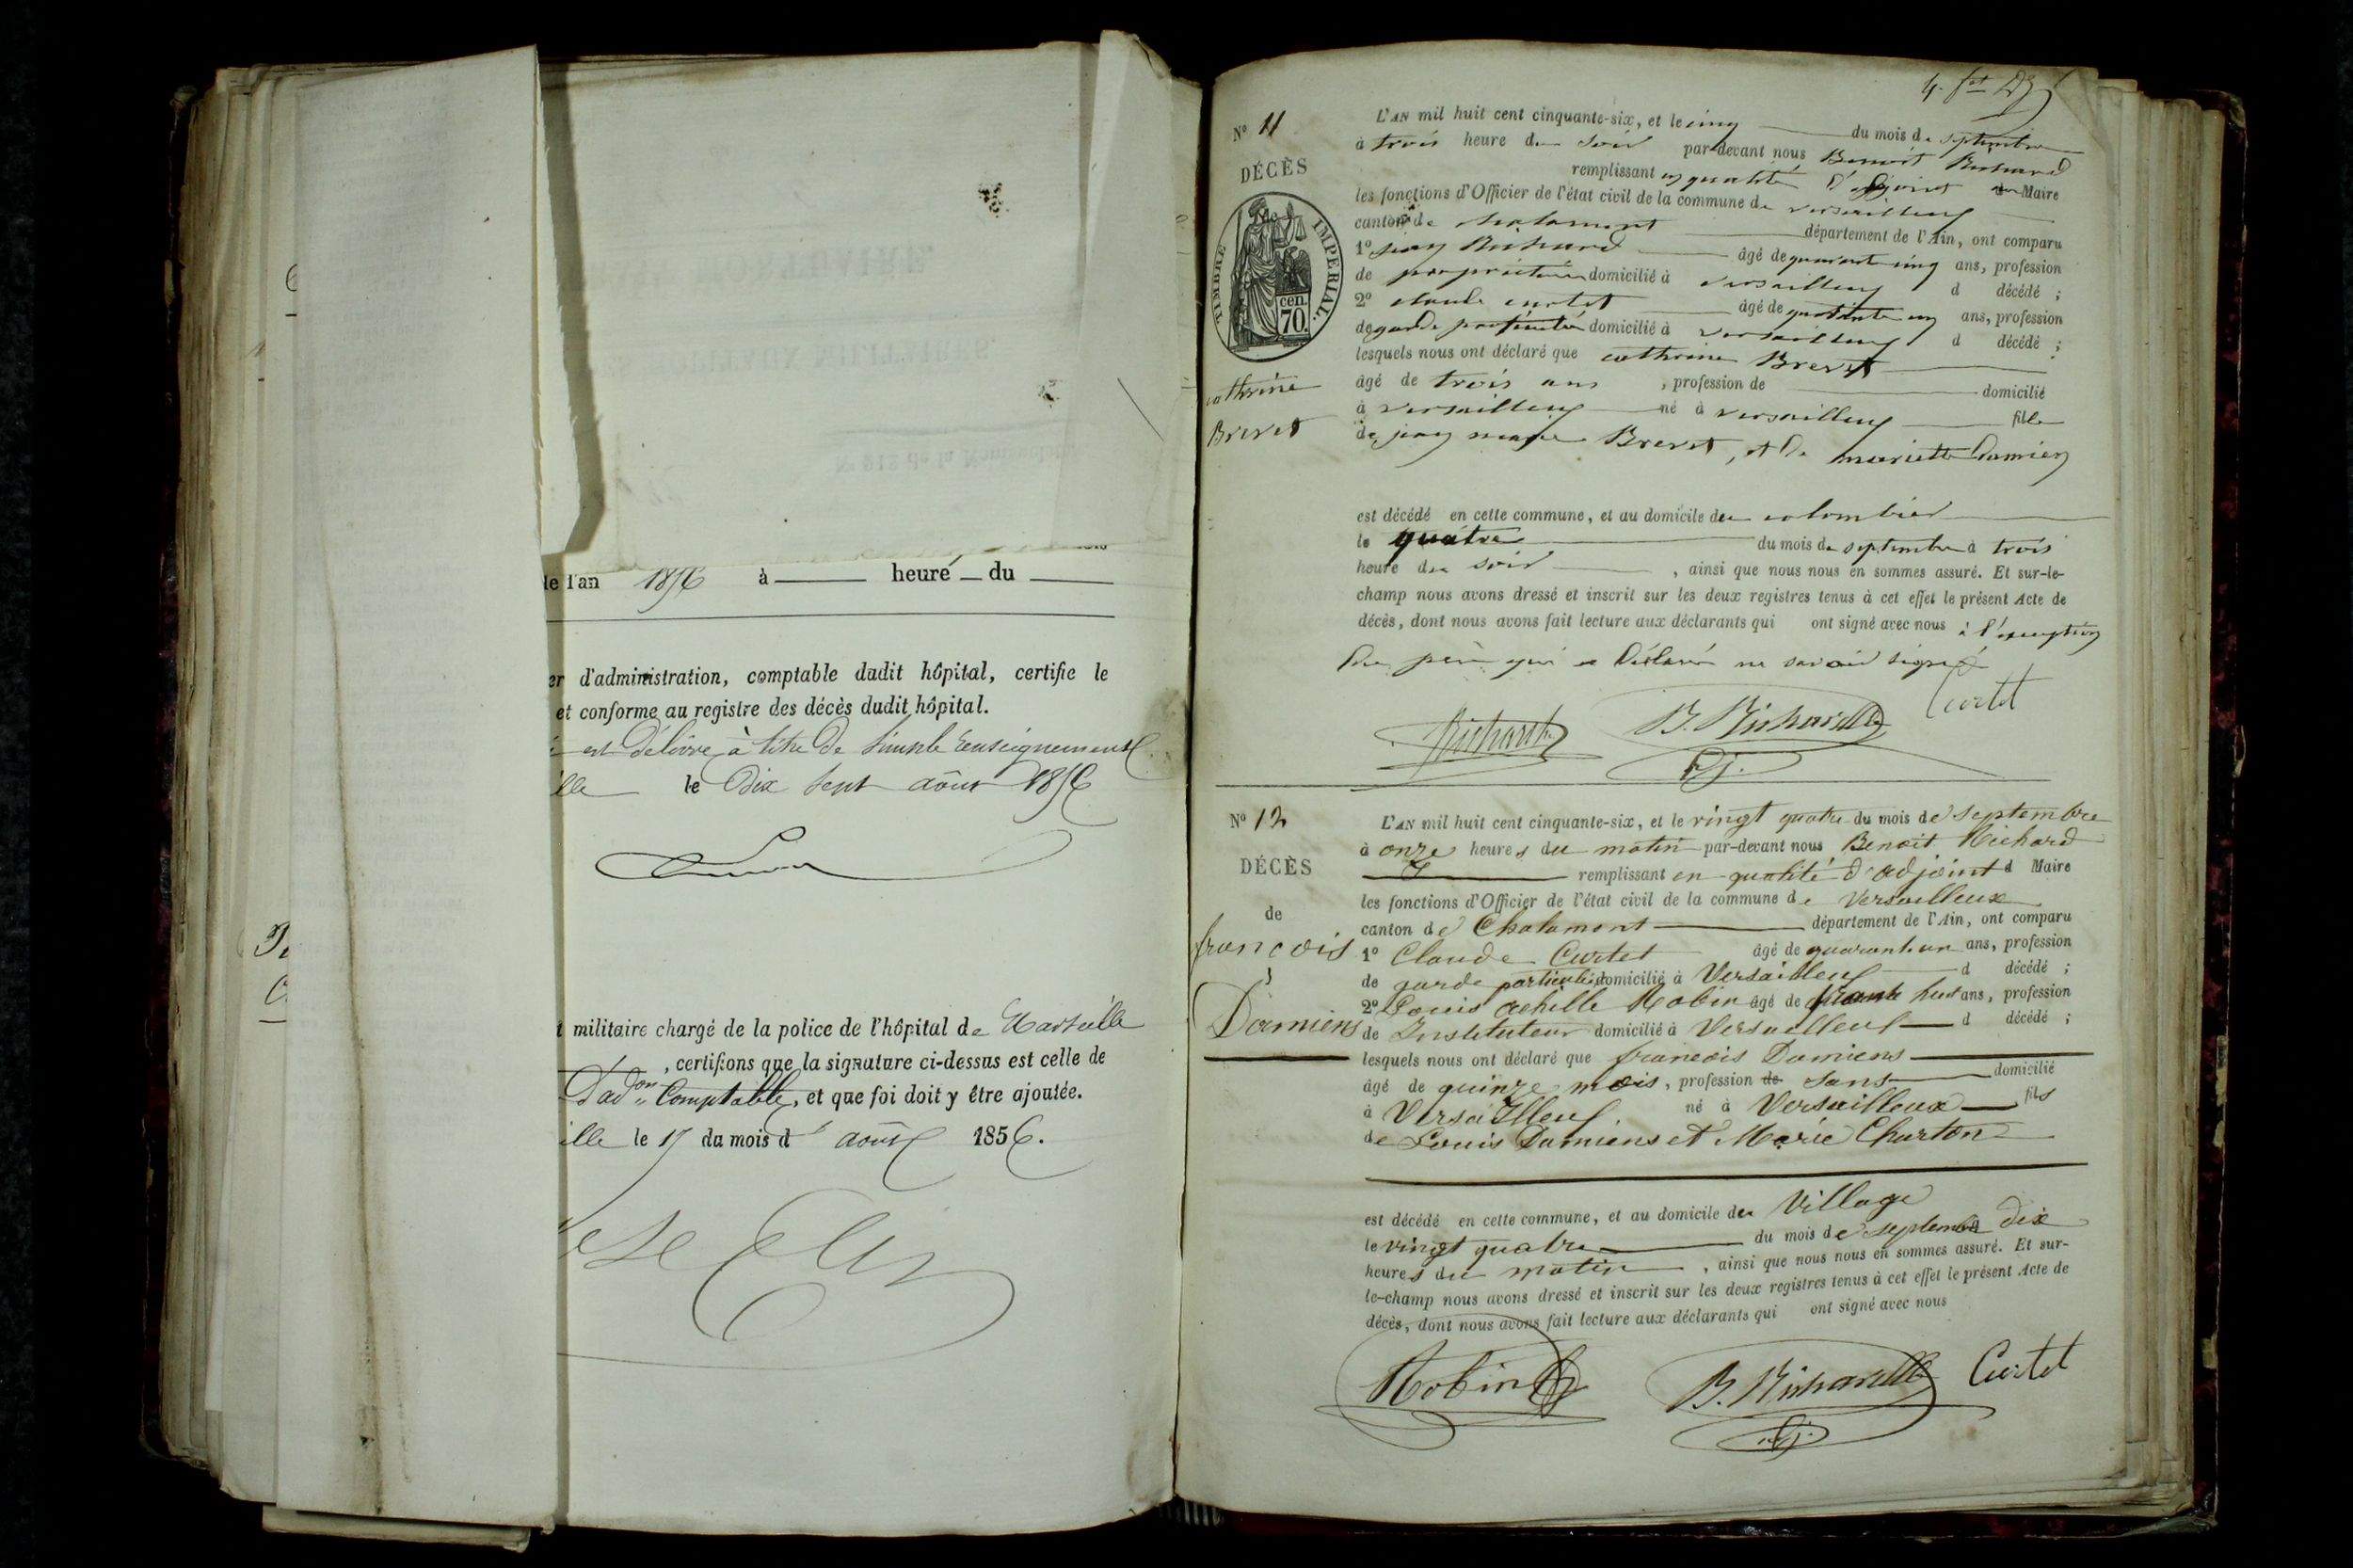 de l'an 1856 à heure du
d'administration, comptable dudit hôpital, certifie le
et conforme au registre des décès dudit hôpital.
est délivré à titre de simple renseignement
le Dix sept août 1856
militaire chargé de la police de l'hôpital de Marseille
, certifions que la signature ci-dessus est celle de
Comptable, et que foi doit y être ajoutée.
le 17 du mois d août 1856.
N° 11
DÉCÈS
TIMBRE IMPERIAL.
cen.
70.
cathrine
Brevet
L'AN mil huit cent cinquante-six, et le cinq du mois de septembre
à trois heure du soir par-devant nous Benoit Richard
remplissant en qualité d'adjoint Maire
les fonctions d'Officier de l'état civil de la commune de versailleux
canton de chalamont département de l'Ain, ont comparu
1° jean Richard âgé de quarante cinq ans, profession
de propriétaire domicilié à versailleux d décédé ;
2° claude curtet âgé de ans, profession
de garde particulier domicilié à versailleux d décédé ;
lesquels nous ont déclaré que cathrine Brevet
âgé de trois ans , profession de domicilié
à versailleux né à versailleux fille
de jean marie Brevet, et de mariette Damien
est décédé en cette commune, et au domicile du colombier
le quatre du mois de septembre à trois
heure du soir , ainsi que nous nous en sommes assuré. Et sur-le-
champ nous avons dressé et inscrit sur les deux registres tenus à cet effet le présent Acte de
décès, dont nous avons fait lecture aux déclarants qui ont signé avec nous à l'exception
du père qui a Déclaré ne savoir signé
Richard B. Richard Curtet
adj.
N° 12
DÉCÈS
de
francois
Damiens
L'AN mil huit cent cinquante-six, et le vingt quatre du mois de septembre
à onze heures du matin par-devant nous Benoit Richard
remplissant en qualité d'adjoint d Maire
les fonctions d'Officier de l'état civil de la commune de Versailleux
canton de Chalamont département de l'Ain, ont comparu
1° Claude Curtet âgé de quarant un ans, profession
de garde particulier domicilié à Versailleux d décédé ;
2° Louis achille Robin âgé de huit ans, profession
de Instituteur domicilié à Versailleux d décédé ;
lesquels nous ont déclaré que francois Damiens
âgé de quinze mois, profession de sans domicilié
à Versailleux né à Versailleux fils
de Louis Damiens et Marie Charton
est décédé en cette commune, et au domicile du Village
le vingt quatre du mois de septembre dix
heures du matin , ainsi que nous nous en sommes assuré. Et sur-
le-champ nous avons dressé et inscrit sur les deux registres tenus à cet effet le présent Acte de
décès, dont nous avons fait lecture aux déclarants qui ont signé avec nous
Robin B. Richard Curtet
adj.